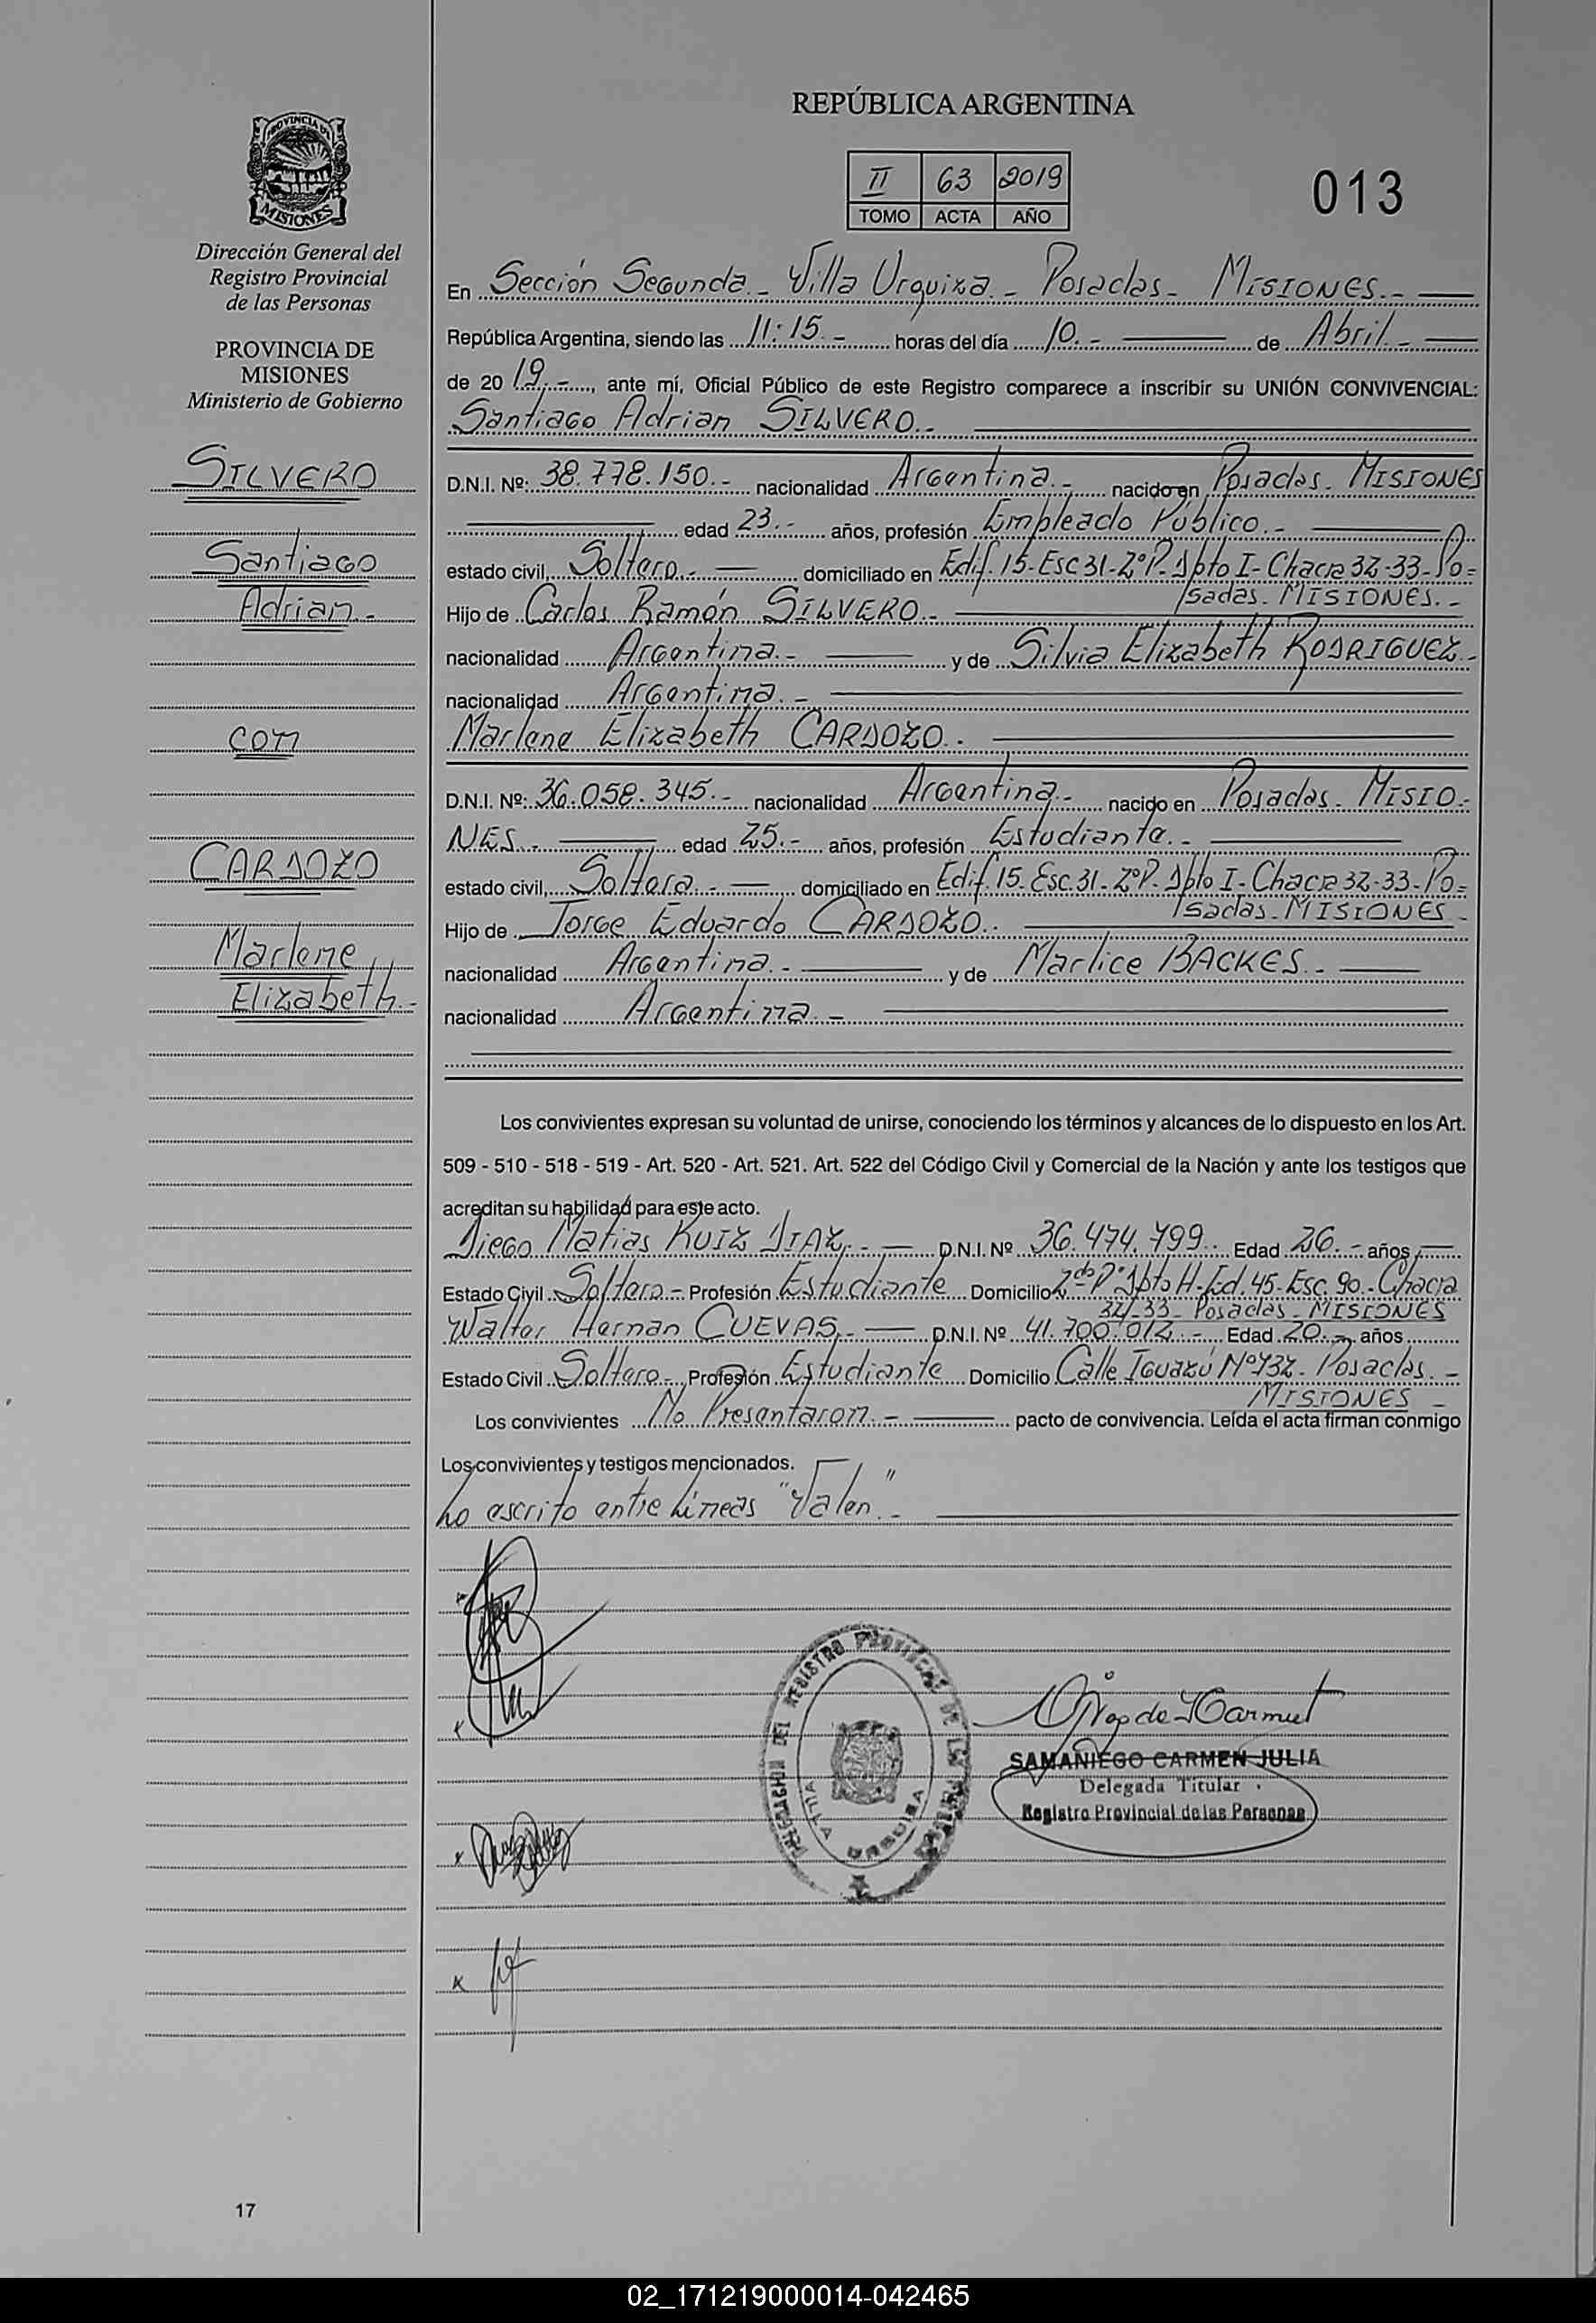 REPÚBLICA ARGENTINA
II 63 2019
TOMO ACTA AÑO
013
PROVINCIA DE
MISIONES
Dirección General del
Registro Provincial
de las Personas
PROVINCIA DE
MISIONES
Ministerio de Gobierno
SILVERO
Santiago
Adrian.-
con
CARDOZO
Marlene
Elizabeth.-
En Sección Segunda.- Villa Urquiza.- Posadas.- MISIONES.-
República Argentina, siendo las 11:15.- horas del día 10.- de Abril.-
de 2019.-, ante mí, Oficial Público de este Registro comparece a inscribir su UNIÓN CONVIVENCIAL:
Santiago Adrian SILVERO.-
D.N.I. Nº: 38.778.150.- nacionalidad Argentina.- nacido en Posadas. MISIONES
edad 23.- años, profesión Empleado Público.-
estado civil, Soltero.- domiciliado en Edif. 15-Esc 31-2ºP. Dpto I-Chacra 32-33-Po=
sadas. MISIONES.-
Hijo de Carlos Ramón SILVERO.-
nacionalidad Argentina.- y de Silvia Elizabeth RODRIGUEZ.-
nacionalidad Argentina.-
Marlene Elizabeth CARDOZO.-
D.N.I. Nº: 36.058.345.- nacionalidad Argentina.- nacido en Posadas. MISIO.-
NES.- edad 25.- años, profesión Estudiante.-
estado civil, Soltera.- domiciliado en Edif. 15.Esc.31-2ºP. Dpto I-Chacra 32-33-Po=
sadas.-MISIONES.-
Hijo de Jorge Eduardo CARDOZO.-
nacionalidad Argentina.- y de Marlice BACKES.-
nacionalidad Argentina.-
Los convivientes expresan su voluntad de unirse, conociendo los términos y alcances de lo dispuesto en los Art.
509 - 510 - 518 - 519 - Art. 520 - Art. 521. Art. 522 del Código Civil y Comercial de la Nación y ante los testigos que
acreditan su habilidad para este acto.
Diego Matias RUIZ DIAZ.- D.N.I. Nº 36.474.799.- Edad 26.- años
Estado Civil Soltero.- Profesión Estudiante Domicilio 2do P. Dpto H-Ed. 45-Esc. 90.-Chacra
32-33- Posadas- MISIONES
Walter Hernan CUEVAS.- D.N.I. Nº 41.700.012.- Edad 20.- años
Estado Civil Soltero.- Profesión Estudiante Domicilio Calle Iguazú Nº 732.- Posadas.-
MISIONES.-
Los convivientes No Presentaron.- pacto de convivencia. Leída el acta firman conmigo
Los convivientes y testigos mencionados.
Lo escrito entre líneas "Valen".-
DELEGACION DEL REGISTRO PROVINCIAL DE LAS PERSONAS
VILLA URQUIZA
SAMANIEGO CARMEN JULIA
Delegada Titular
Registro Provincial de las Personas
17
02_171219000014-042465